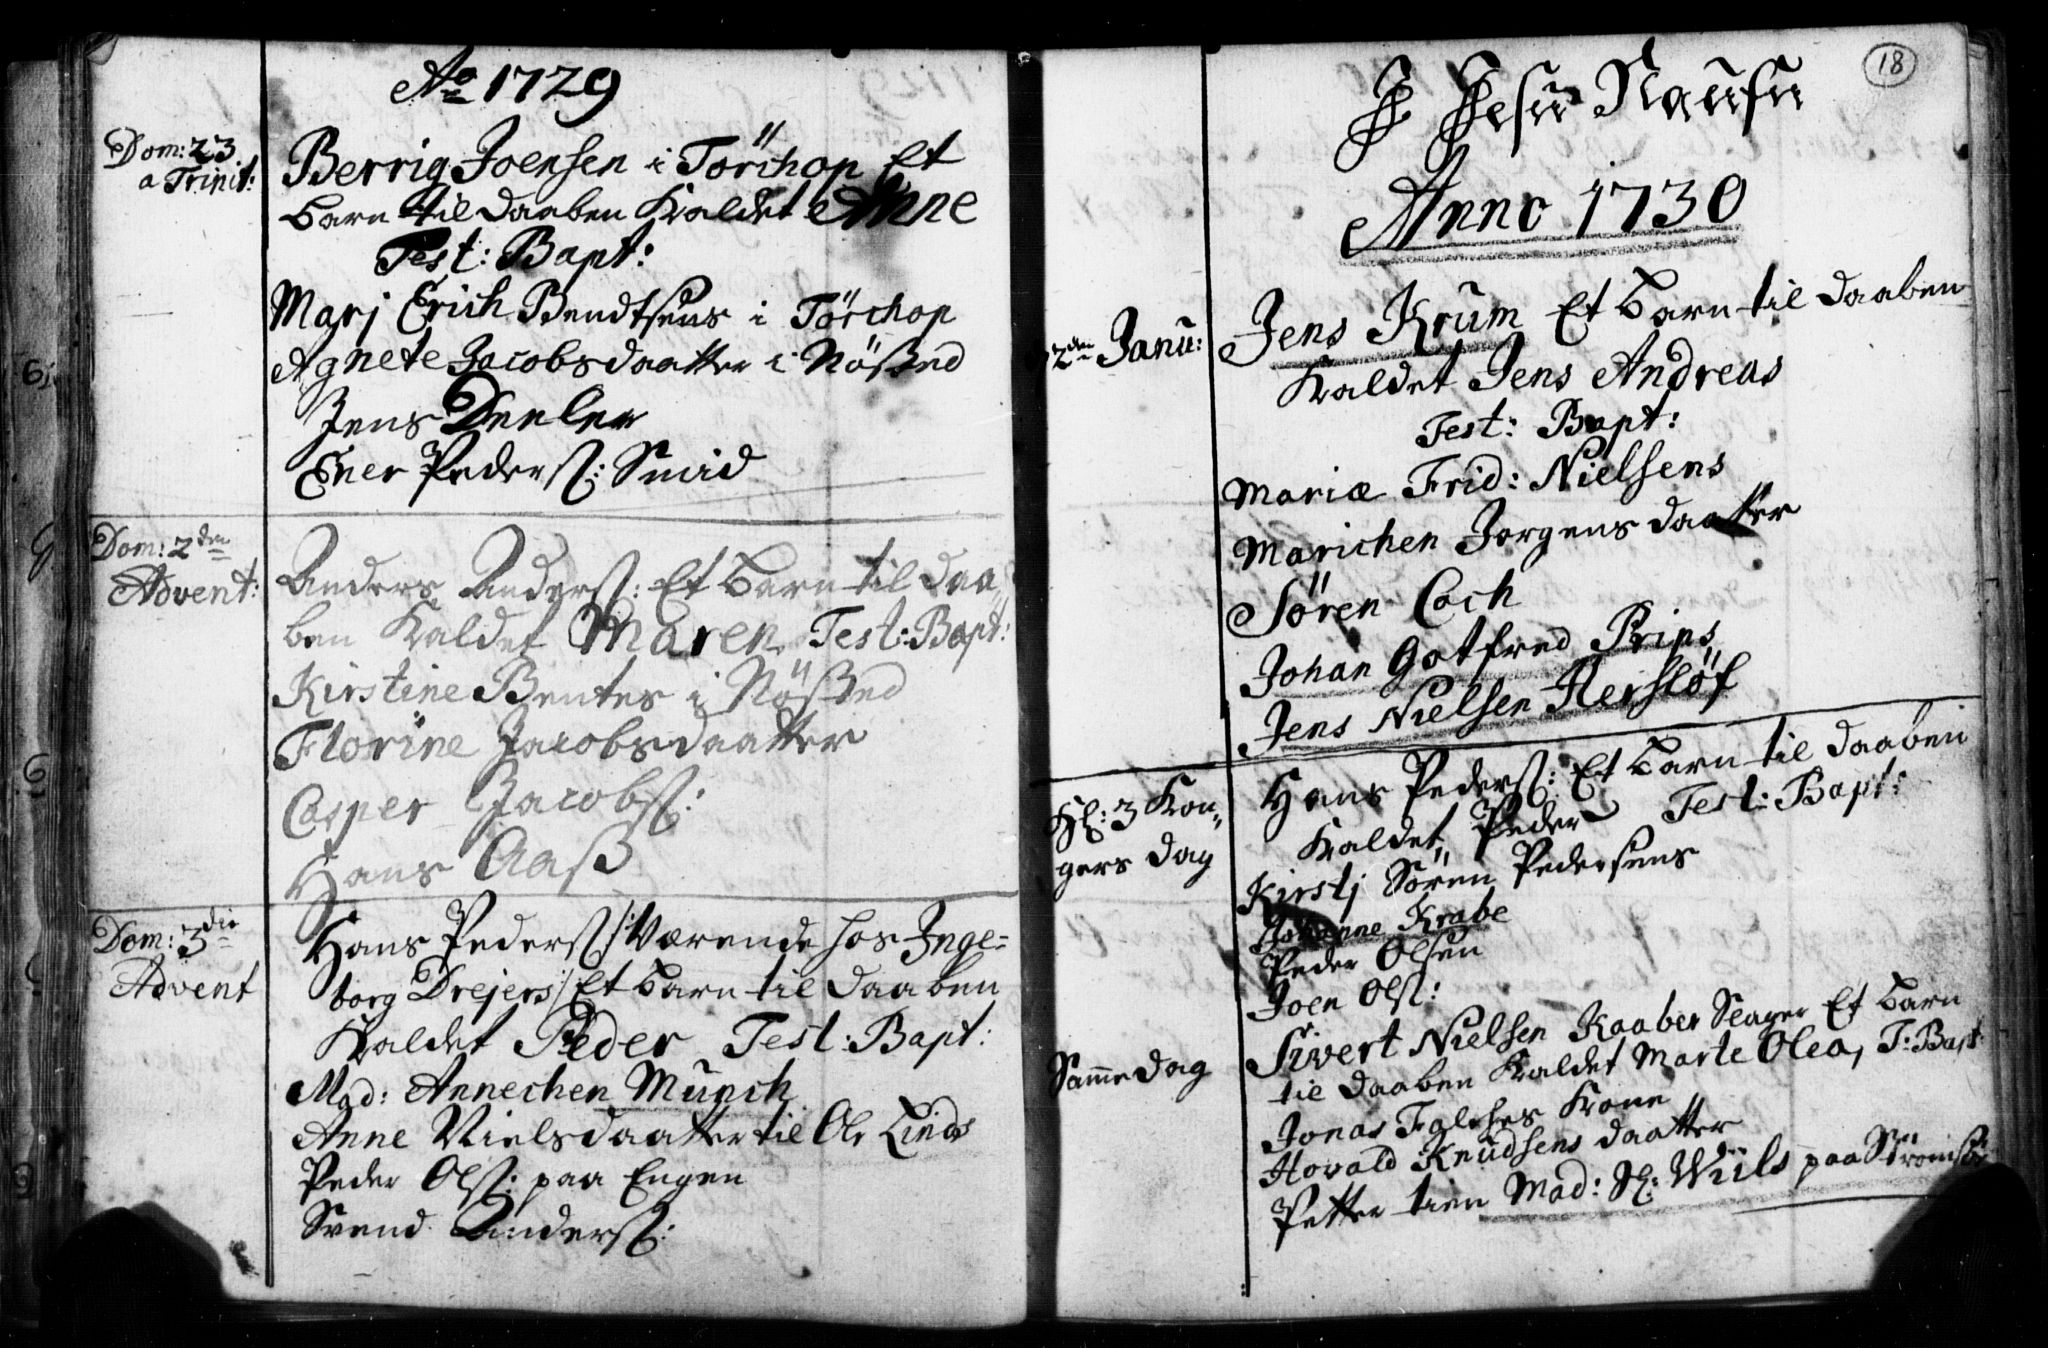 Ao 1729
Dom: 23.
a Trinit:
Berrig Joensen i Törchop Et
barn til daaben Kaldet Anne
Test: Bapt:
Marj Erich Bendtsens i Törchop
Agnete Jacobsdaatter i Nößted
Jens
Ener Peders: Smid
Dom: 2den
Advent:
Anders Anders: Et barn til daa,,
ben Kaldet Maren, Test: Bapt:
Kirstine Bentes i Nößted
Florine Jacobsdaatter
Casper Jacobs:
Hans Aaß
Dom: 3die
Advent
Hans Peders: /: Værende hos Inge=
borg Drejers :/ Et barn til daaben
Kaldet Peder Test: Bapt:
Mad: Annechen Munch
Anne Nielsdaatter til Ole Linds
Peder Ols: paa Engen
Svend Anders:
18
J Jesu Naufn
Anno 1730
2den Janu:
Jens Krum Et barn til daaben
Kaldet Jens Andreas
Test: Bapt:
Mariæ Frid: Nielsens
Marichen Jorgens daatter
Sören Coch
Johan Gotfred Prips
Jens Nielsen Hersløf
Hl: 3 Kon,,
gers dag
Hans Peders: Et barn til daaben
Kaldet Peder Test: Bapt:
Kirstj Sören Pedersens
Johanne Krabe
Peder Olsen
Joen Ols:
Samme dag
Sivert Nielsen Kaaber Slager Et barn
til daaben Kaldet Marte Olea, T: Bapt:
Jonas Falches Kone
Hovald Knudsens daatter
Petter tien Mad: Sl: Wiils paa Strömsöe